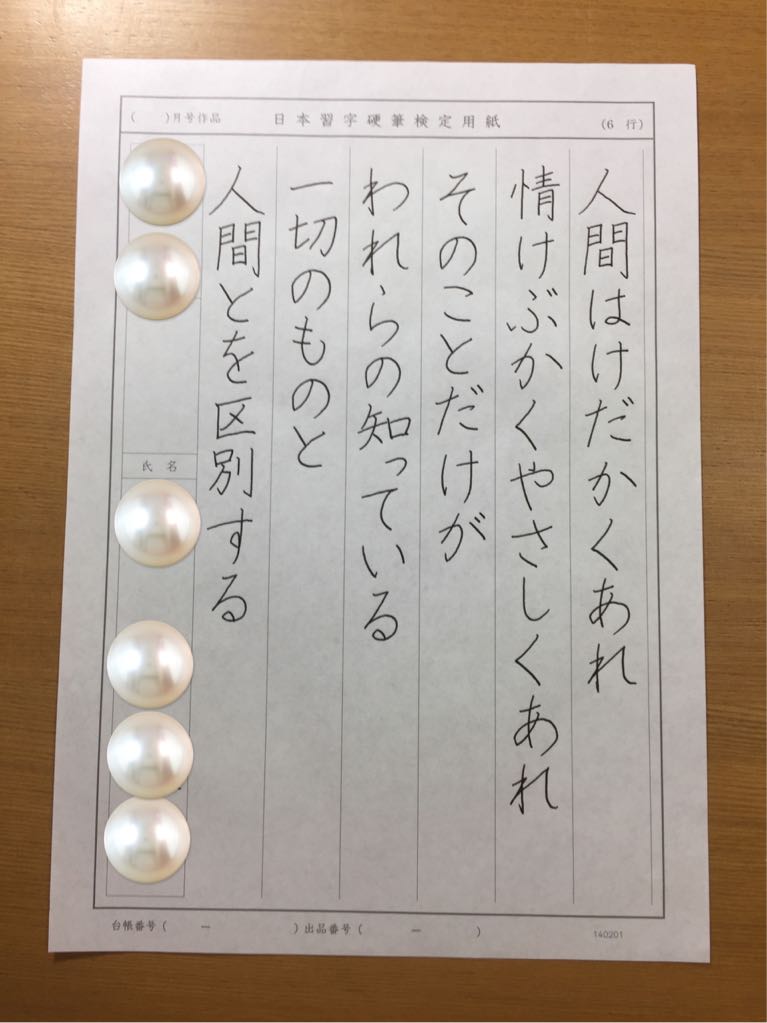 (　)月号作品　日本習字硬筆検定用紙　(6　行)
人間はけだかくあれ
情けぶかくやさしくあれ
そのことだけが
われらの知っている
一切のものと
人間とを区別する
氏名
台帳番号(　ー　)出品番号(　ー　)　140201